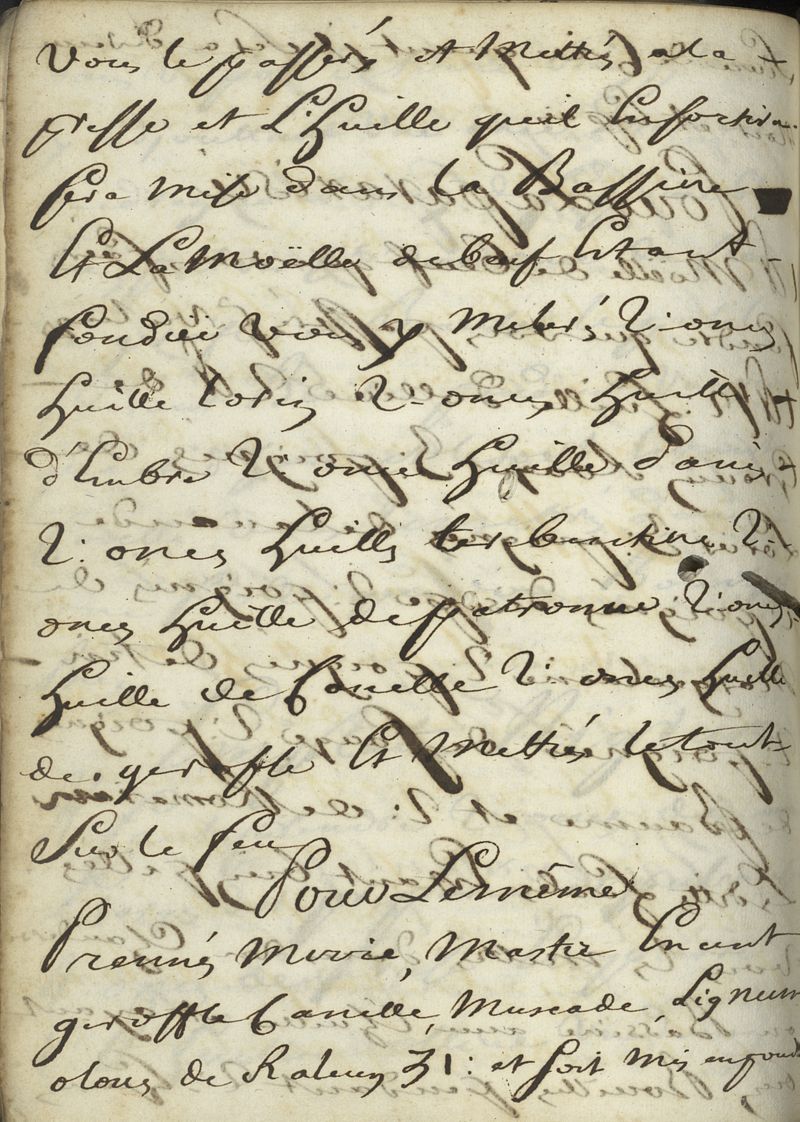 Vous le passerés et Mettés a la
presse et L'Huille qu'il En sortira
sera mise dans la Bassine
Et La Moëlle de beuf Etant
fondue vous y Meleré 2: onces
Huille lorin 2: onces Huille
d'Embre 2: once Huille d'anis
2: onces Huille terbentine 2:
onces Huille de patronne 2: onces
Huille de Canelle 2: onces Huille
de geroffle Et Mettés le tout
Sur le feu
Pour Le même
Prennés Mirié, Mastic Encent
geroffle Canelle, Muscade, Lignum
olous de 31: et soit mis en poud